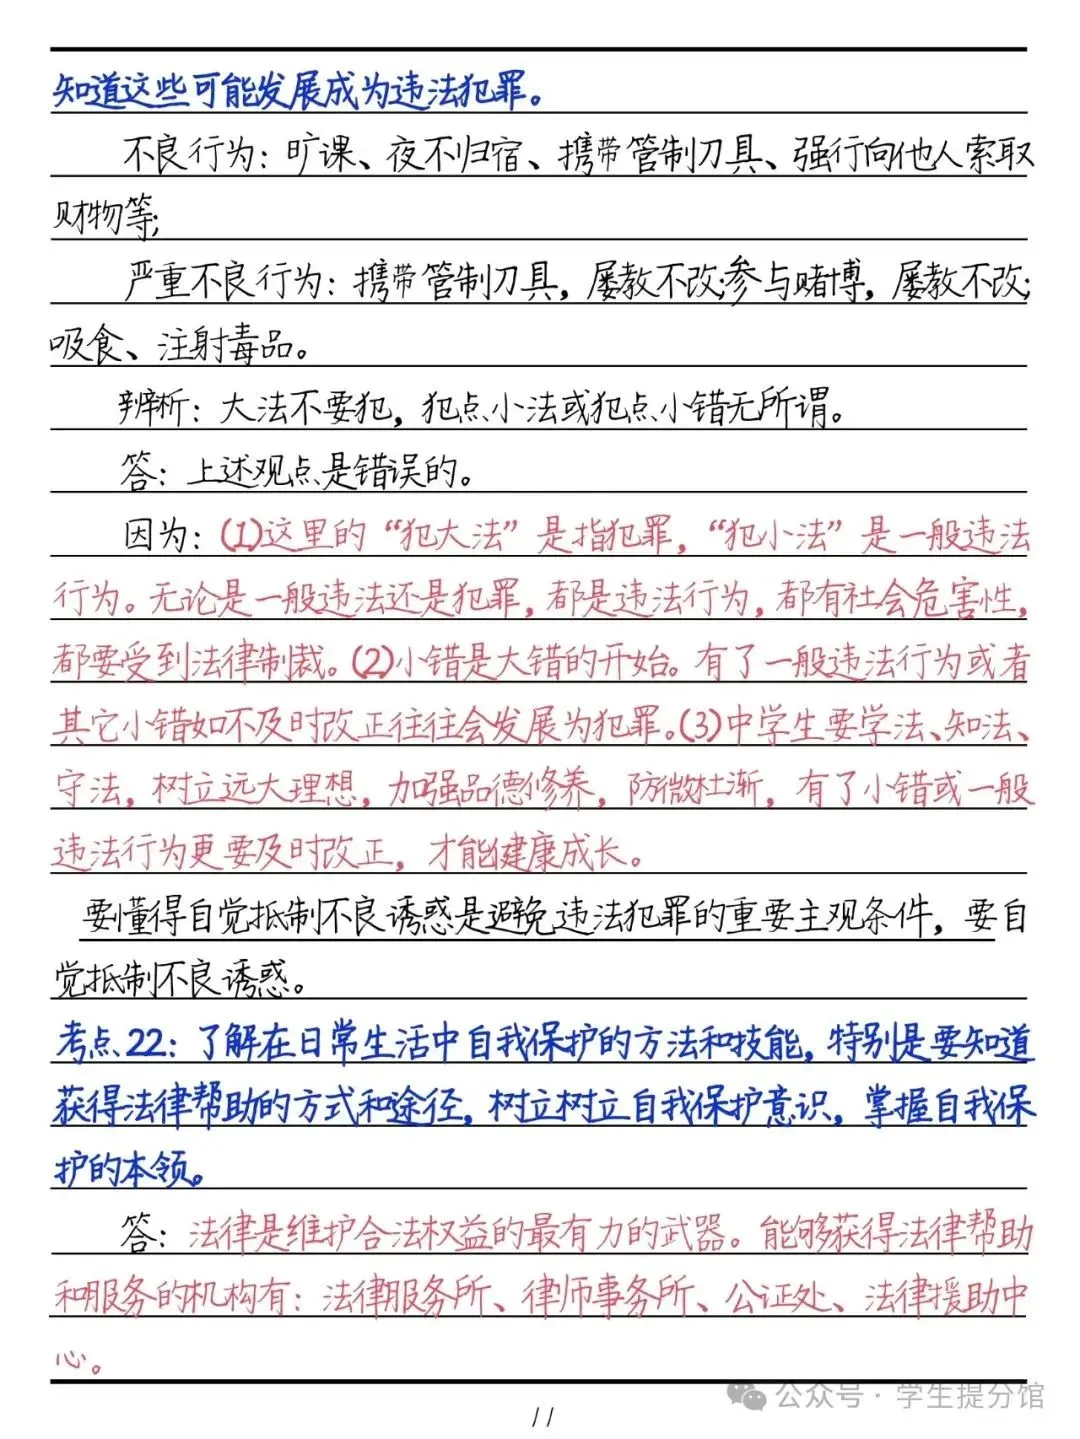 知道这些可能发展成为违法犯罪。
不良行为：旷课、夜不归宿、携带管制刀具、强行向他人索取
财物等;
严重不良行为：携带管制刀具，屡教不改;参与赌博，屡教不改;
吸食、注射毒品。
辨析：大法不要犯，犯点小法或犯点小错无所谓。
答：上述观点是错误的。
因为：(1)这里的“犯大法”是指犯罪，“犯小法”是一般违法
行为。无论是一般违法还是犯罪，都是违法行为，都有社会危害性，
都要受到法律制裁。(2)小错是大错的开始。有了一般违法行为或者
其它小错如不及时改正往往会发展为犯罪。(3)中学生要学法、知法、
守法，树立远大理想，加强品德修养，防微杜渐，有了小错或一般
违法行为更要及时改正，才能健康成长。
要懂得自觉抵制不良诱惑是避免违法犯罪的重要主观条件，要自
觉抵制不良诱惑。
考点22：了解在日常生活中自我保护的方法和技能，特别是要知道
获得法律帮助的方式和途径，树立树立自我保护意识，掌握自我保
护的本领。
答：法律是维护合法权益的最有力的武器。能够获得法律帮助
和服务的机构有：法律服务所、律师事务所、公证处、法律援助中
心。
公众号·学生提分馆
11